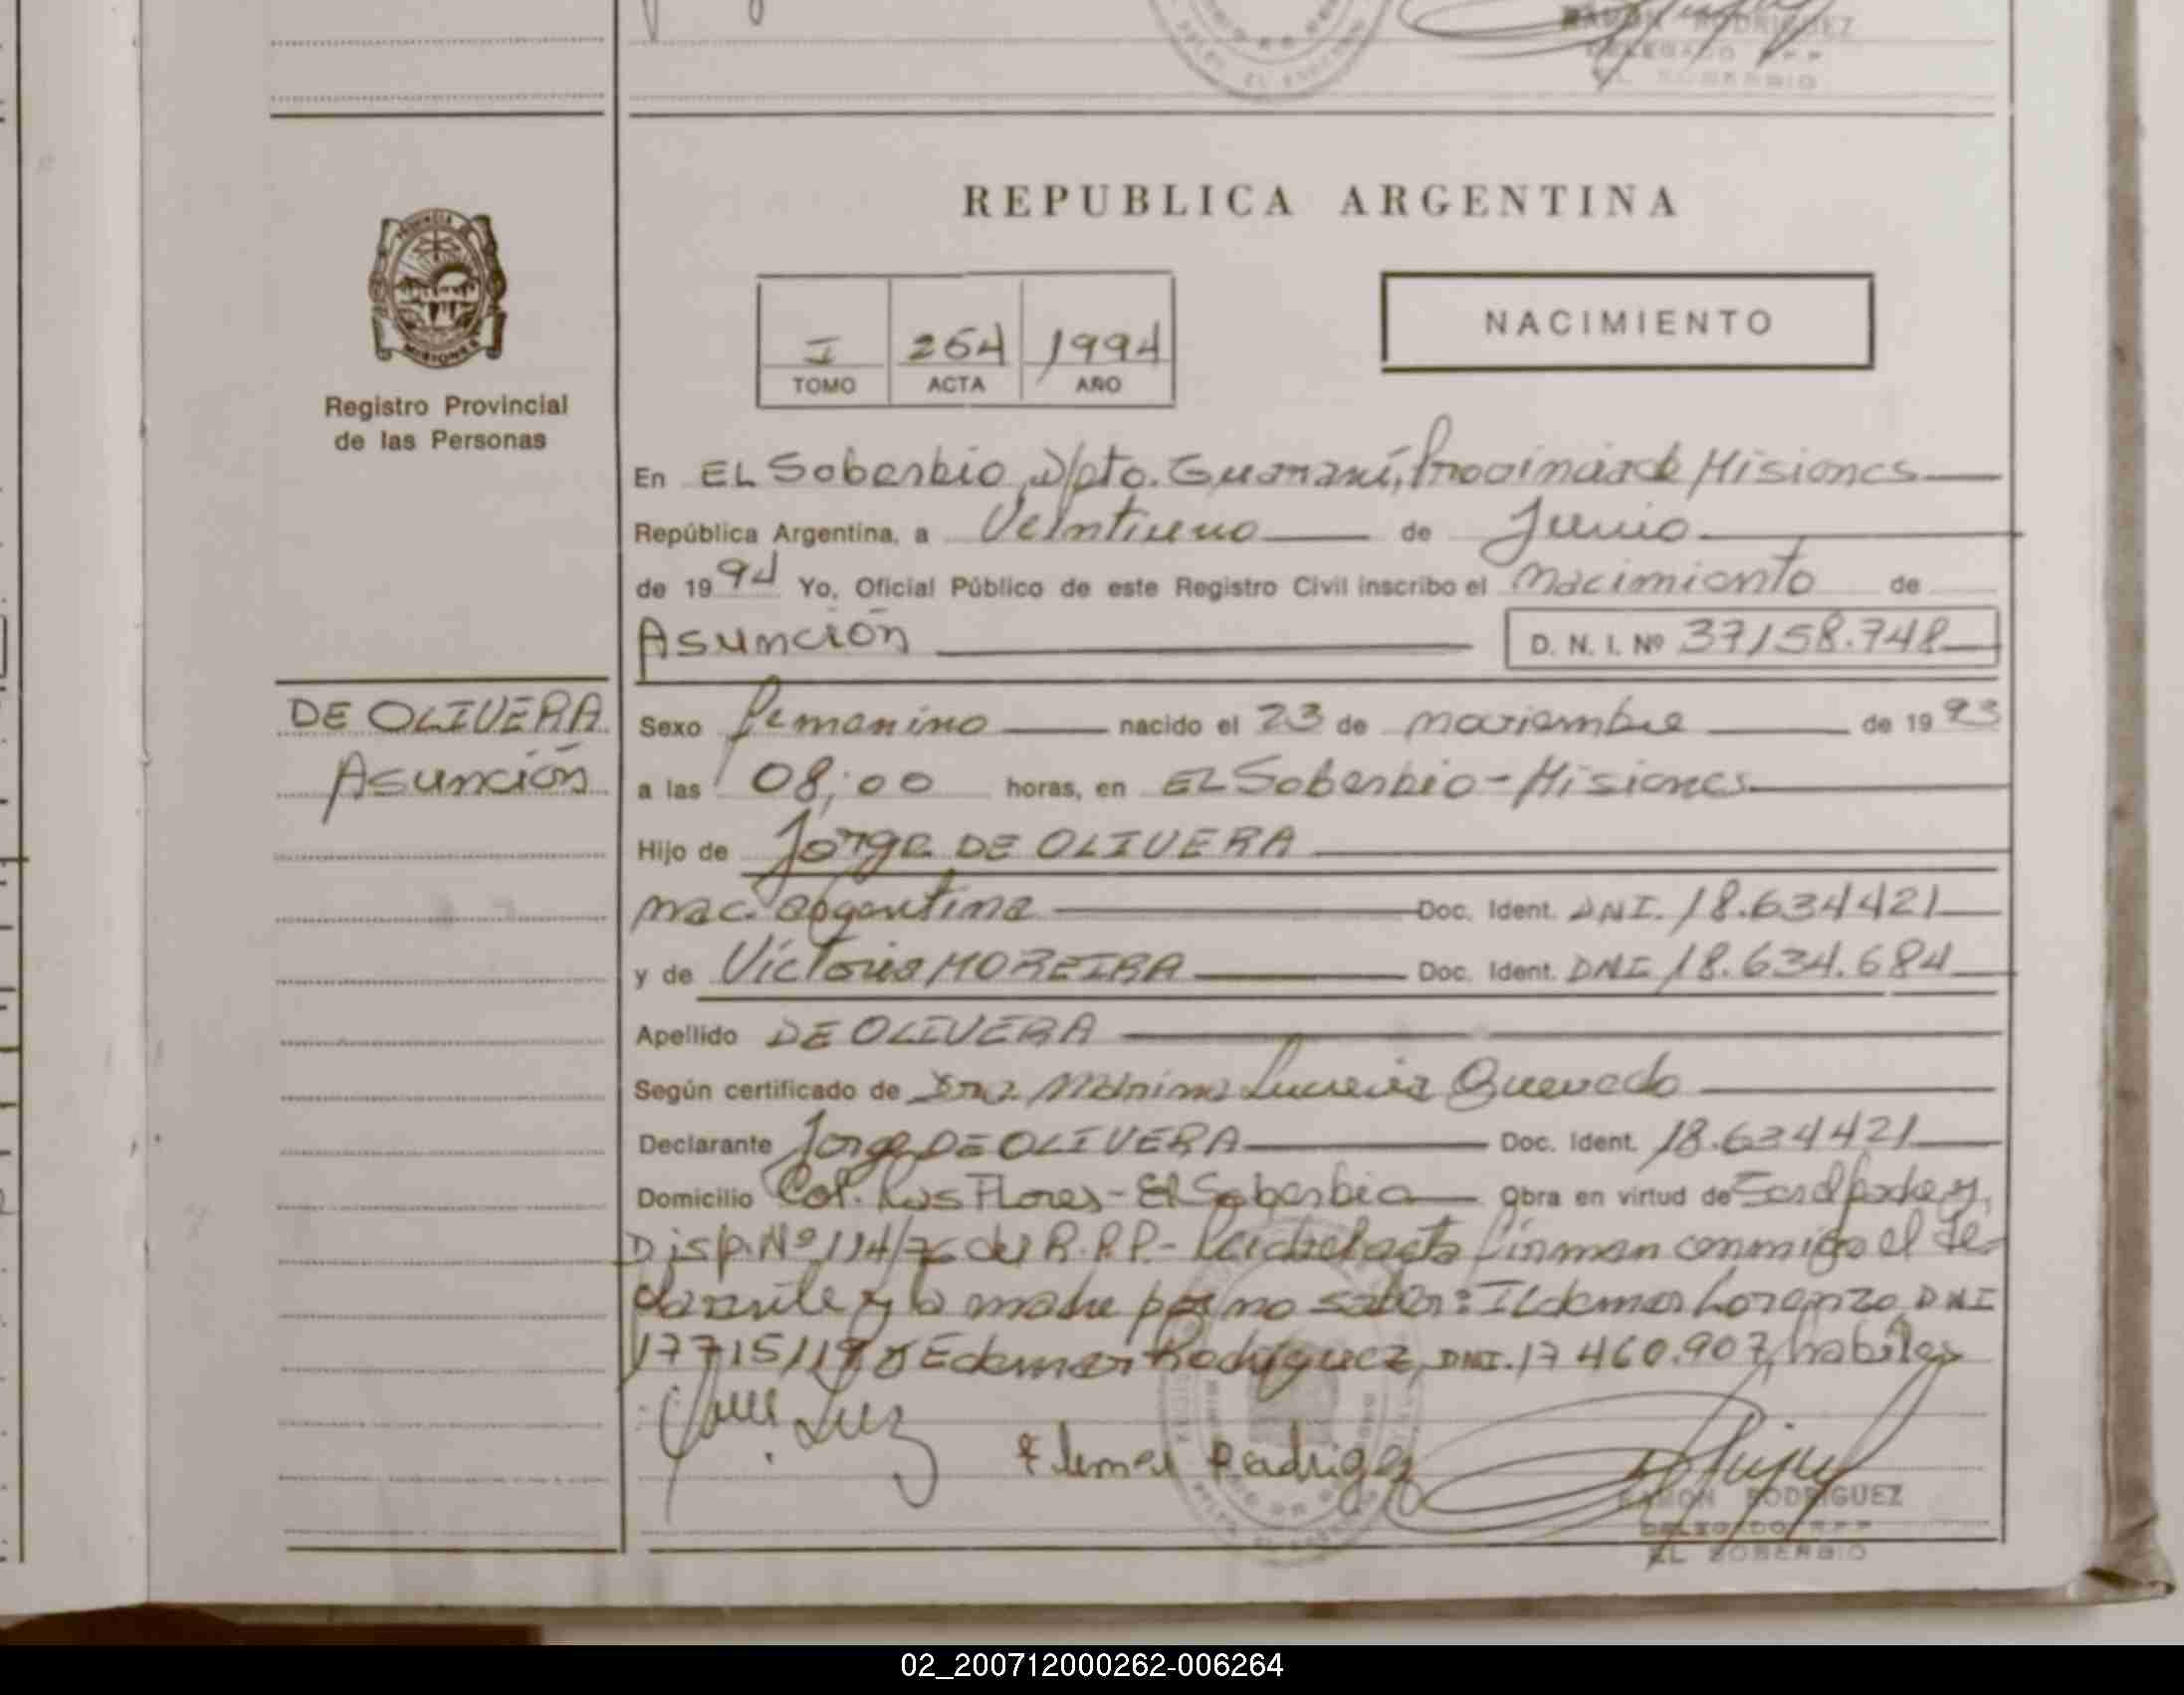 RAMON RODRIGUEZ
DELEGADO R.P.P
EL SOBERBIO
REPUBLICA ARGENTINA
PROVINCIA DE
MISIONES
Registro Provincial
de las Personas
I 264 1994
TOMO ACTA AÑO
NACIMIENTO
En EL Soberbio, D/pto. Guaraní, Provincia de Misiones
República Argentina, a Veintiuno de Junio
de 19 94 Yo, Oficial Público de este Registro Civil inscribo el nacimiento de
Asunción D. N. I. Nº 37158.748
DE OLIVERA
Asunción
Sexo femenino nacido el 23 de noviembre de 19 93
a las 08:00 horas, en EL Soberbio - Misiones
Hijo de Jorge DE OLIVERA
nac. argentina Doc. Ident. DNI. 18.634421
y de Victoria MOREIRA Doc. Ident. DNI 18.634.684
Apellido DE OLIVERA
Según certificado de Dra. Marina Lucrecia Quevedo
Declarante Jorge DE OLIVERA Doc. Ident. 18.634421
Domicilio Col. Las Flores - El Soberbio Obra en virtud de Ser el padre y
Disp. Nº 114/76 del R.P.P. - Leida el acta firman conmigo el de-
clarante y la madre por no saber: ILdemar Lorenzo DNI
Edemar Rodriguez, DNI. 17 460.907, habiles
Luz
Rodriguez
RAMON RODRIGUEZ
DELEGADO R.P.P
EL SOBERBIO
02_200712000262-006264